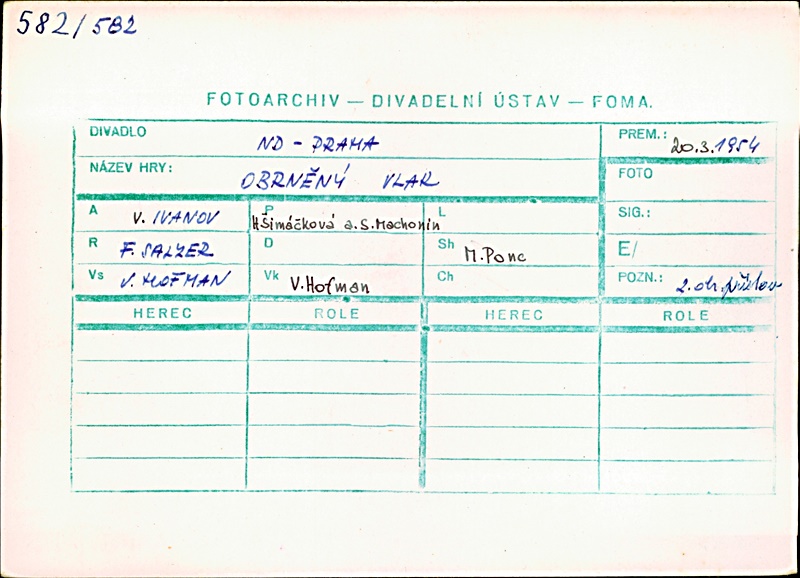 582/582
FOTOARCHIV — DIVADELNÍ ÚSTAV — FOMA.
DIVADLO ND - PRAHA PREM.: 20.3.1954
NÁZEV HRY: OBRNĚNÝ VLAK FOTO
A V. IVANOV P HŠimáčková a.S.Machonin L SIG.:
R F. SALZER D Sh M.Ponc E/
Vs V. HOFMAN Vk V.Hofman Ch POZN.: 2. ob.
HEREC ROLE HEREC ROLE